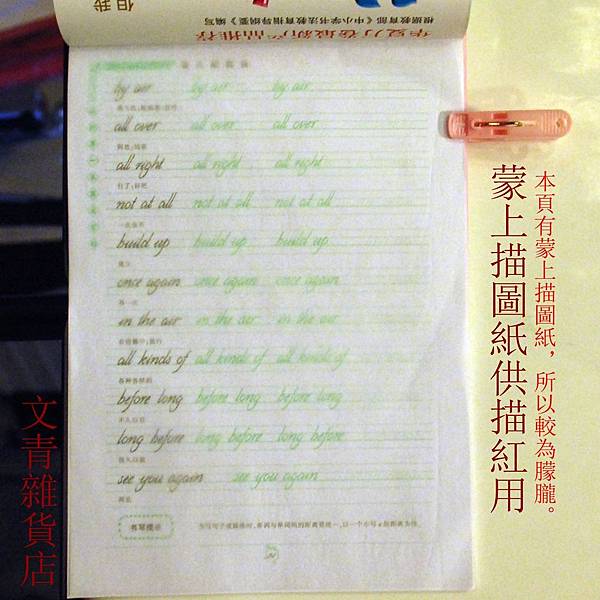 根據教育部《中小学书法教育指导纲要》编写
华夏万卷最新产品推荐
by air by air by air
all over all over all over
all right all right all right
not at all not at all not at all
build up build up build up
once again once again once again
再一次
in the air in the air in the air
all kinds of all kinds of all kinds of
各种各样的
before long before long before long
不久以后
long before long before long before
很久以前
see you again see you again
再见
书写提示
本頁有蒙上描圖紙，所以較為朦朧。
蒙上描圖紙供描紅用
文青雜貨店